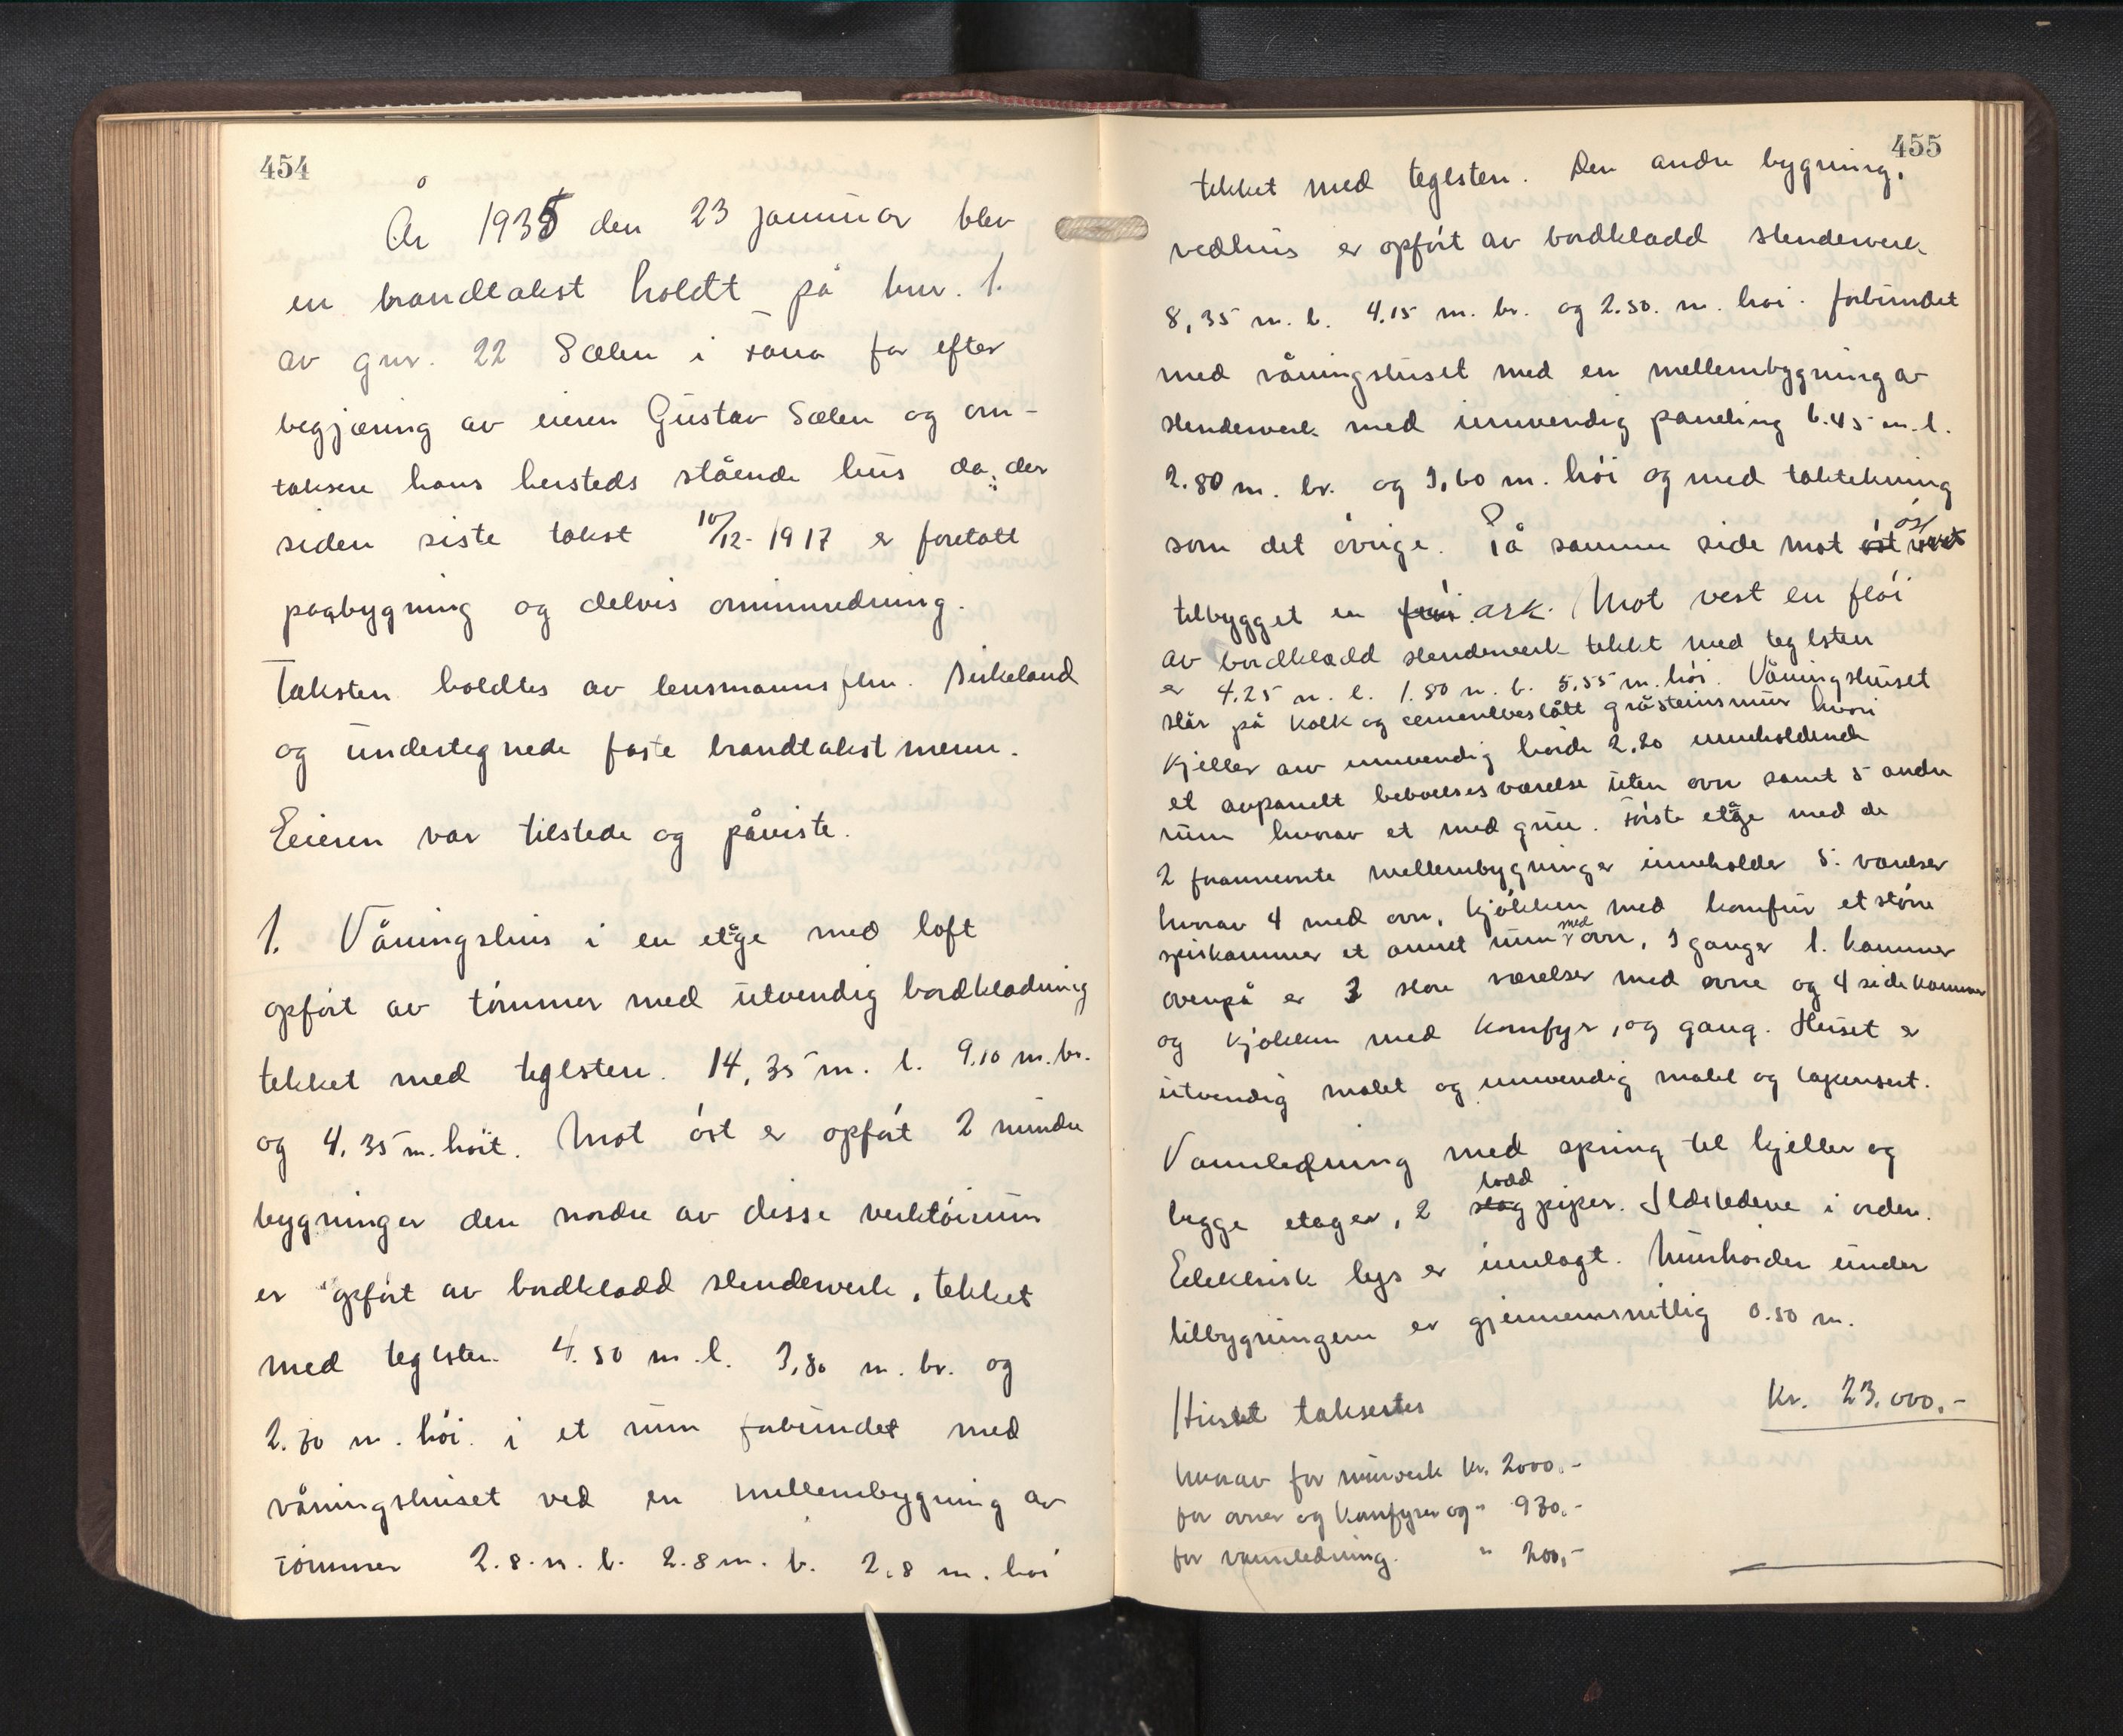 454
År 1935 den 23 januar blev
en brandtakst holdt på bnr. 1.
av gnr. 22 Sælen i Fana for efter
begjæring av eieren Gustav Sælen og om-
taksere hans hersteds stående hus da der
siden siste takst 10/12-1917 er foretatt
paabygning og delvis ominnredning.
Taksten holdtes av lensmannsflm. Birkeland
og undertegnede faste brandtakstmenn.
Eieren var tilstede og påviste.
1. Våningshus i en etage med loft
opført av tømmer med utvendig bordklædning
tekket med teglsten. 14,35 m. l. 9.10 m. br.
og 4,35 m. høit. Mot øst er opført 2 mindre
bygninger den nordre av disse verktøirum
er opført av bordklædd stenderverk, tekket
med teglsten 4.50 m. l. 3,80 m. br. og
2.30 m. høi. i et rum forbundet med
våningshuset ved en mellembygning av
tømmer 2.8. m. l. 2.8 m. b. 2,8 m. høi
455
tekket med teglsten. Den andre bygning,
vedhus er opført av bordklædd stenderverk
8,35 m. l. 4.15 m. br. og 2.50. m. høi. forbundet
med våningshuset med en mellembygning av
stenderverk med innvendig paneling 6.45 m. l.
2.80 m. br. og 3,60 m. høi og med taktekning
som det øvrige. På samme side mot øst
tilbygget en ark. Mot vest en fløi
av bordklædd stenderverk tekket med teglsten
er 4.25 m. l. 1.80 m. b. 5,55 m. høi. Våningshuset
står på kalk og cementbeslått gråsteinsmur hvori
kjeller av innvendig høide 2,20 inneholdende
et avpanelt beboelsesværelse uten ovn samt 5 andre
rum hvorav et med grue. Første etage med de
2 forannevnte mellembygninger inneholder 5. værelser
hvorav 4 med ovn, kjøkken med komfur et større
spiskammer et annet rum med ovn, 3 ganger 1. kammer
ovenpå er 3 store værelser med ovne og 4 sidekammer
og kjøkken med komfyr, og gang. Huset er
utvendig malet og innvendig malet og tapetsert.
Vannledning med spring til kjeller og
begge etager, 2 piper. Ildstedene i orden.
Eelektrisk lys er innlagt. Murhøiden under
tilbygningene er gjennemsnitlig 0.50 m.
Huset taksertes Kr. 23.000.-
hvorav for murverk kr. 2000.-
for ovner og komfyrer og " 930.-
for vannledning. " 200,-